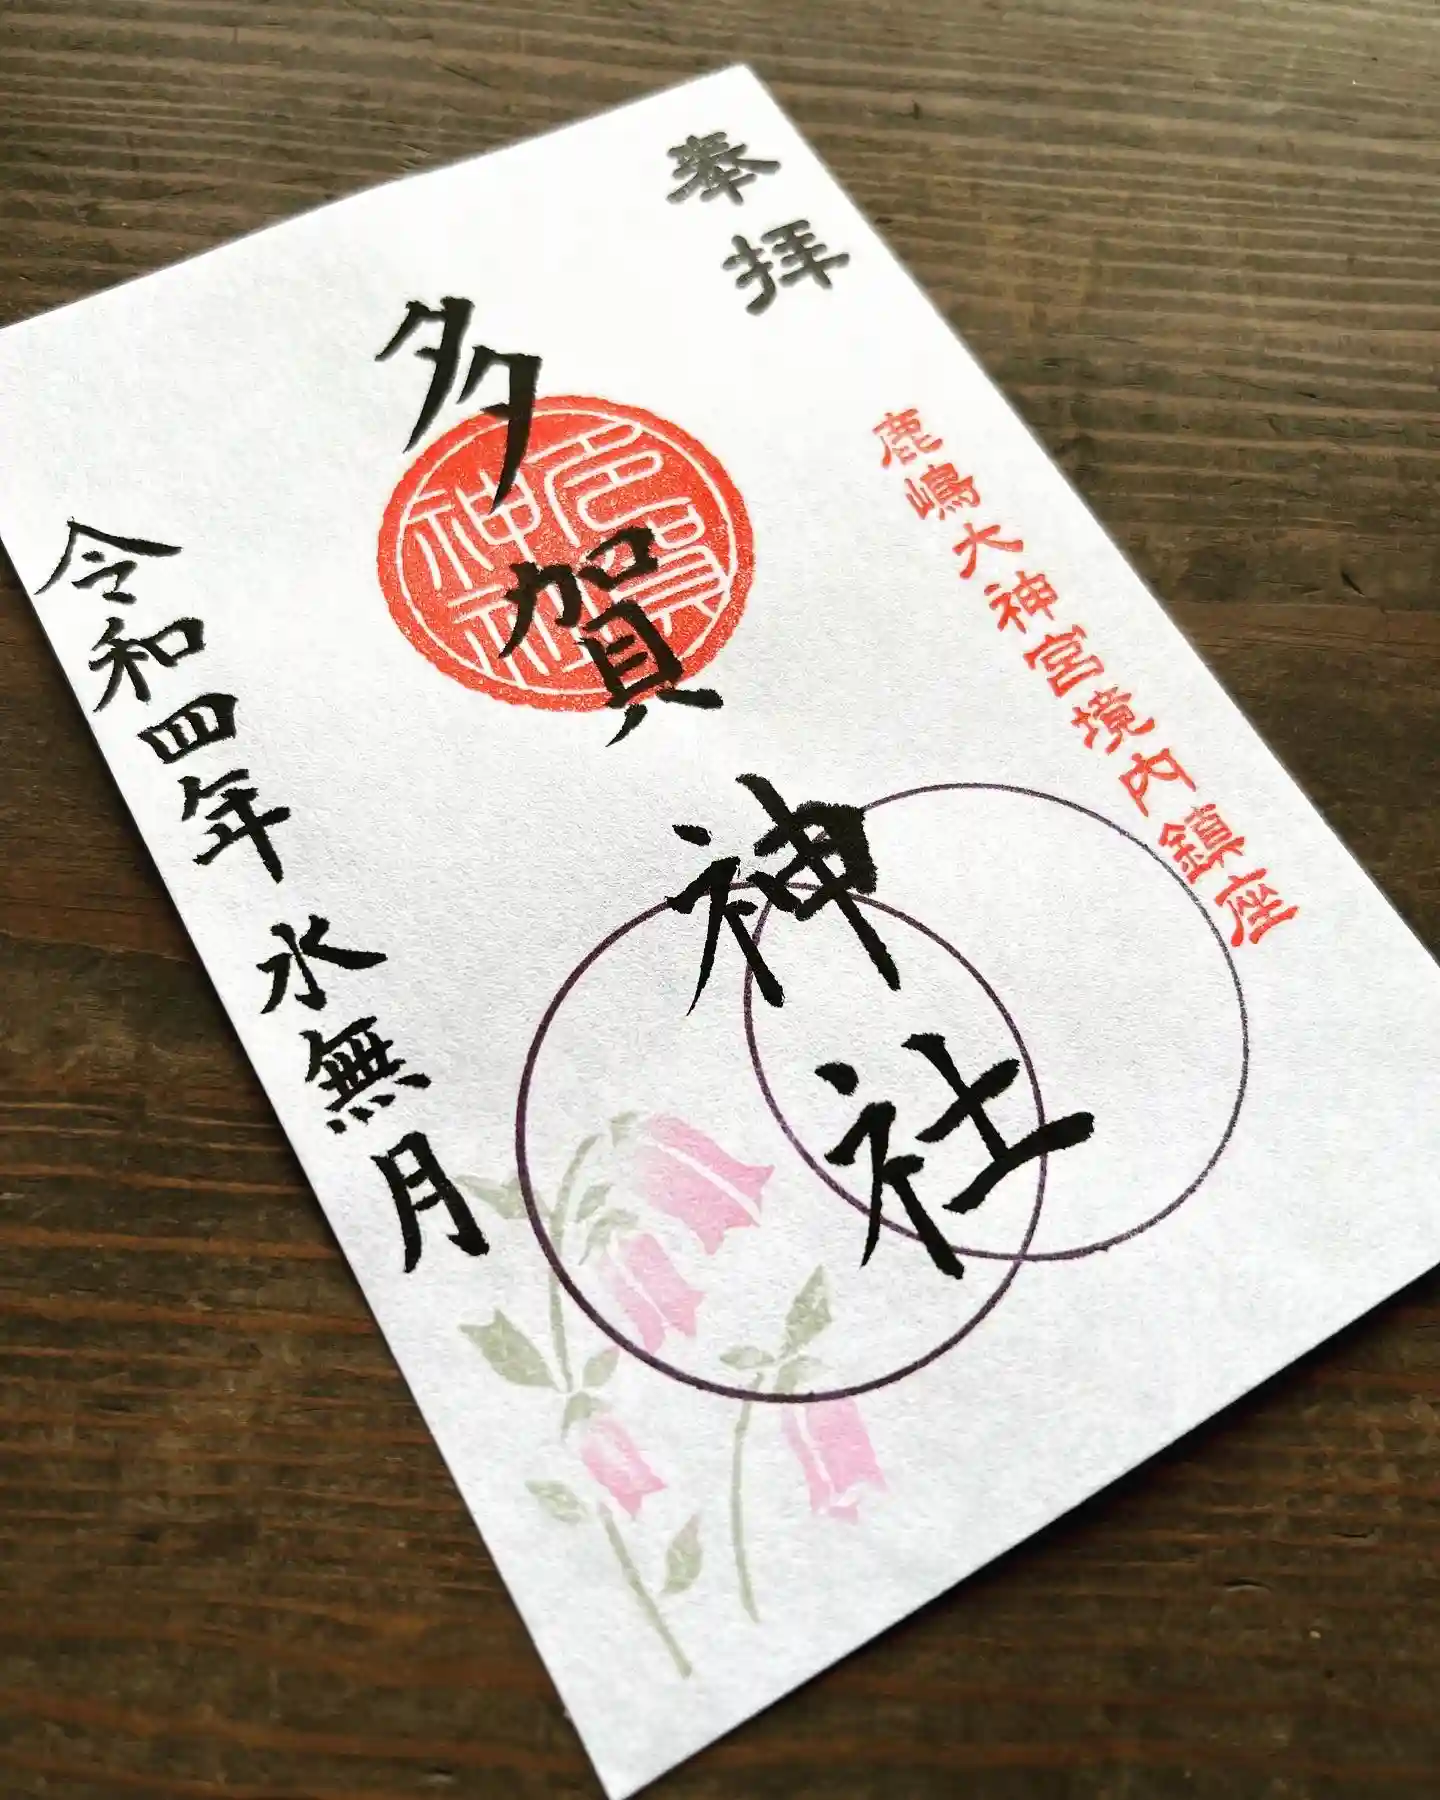 奉拝
鹿嶋大神宮境内鎮座
多賀神社
多賀
神社
令和四年水無月